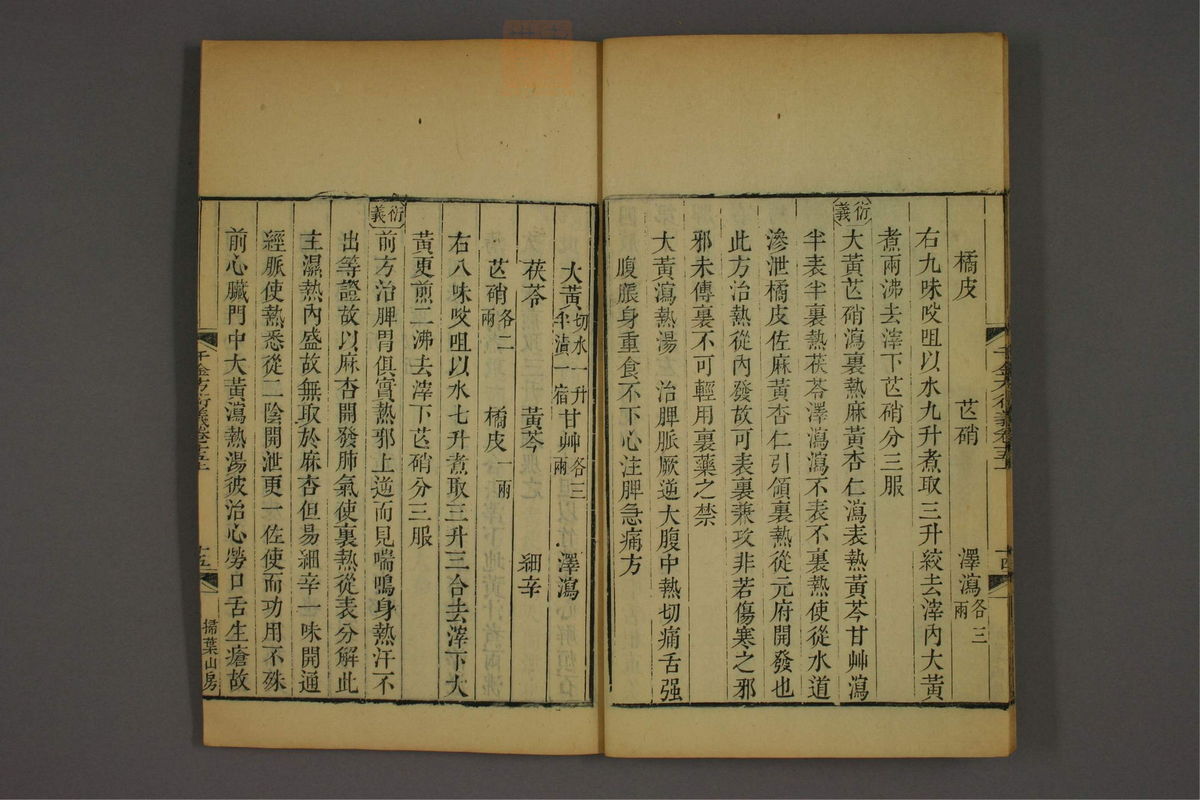 橘皮 芒硝 澤瀉各三兩
右九味㕮咀以水九升煮取三升絞去滓內大黃
煮兩沸去滓下芒硝分三服
衍義
大黃芒硝瀉裏熱麻黃杏仁瀉表熱黃芩甘艸瀉
半表半裏熱茯苓澤瀉瀉不表不裏熱使從水道
滲泄橘皮佐麻黃杏仁引領裏熱從元府開發也
此方治熱從內發故可表裏兼攻非若傷寒之邪
邪未傳裏不可輕用裏藥之禁
大黃瀉熱湯 治脾脈厥逆大腹中熱切痛舌强
腹脹身重食不下心注脾急痛方
大黃切水一升半漬一宿 甘艸各三兩 澤瀉
茯苓 黃芩 細辛
芒硝各二兩 橘皮一兩
右八味㕮咀以水七升煮取三升三合去滓下大
黃更煎二沸去滓下芒硝分三服
衍義
前方治脾胃俱實熱邪上逆而見喘鳴身熱汗不
出等證故以麻杏開發肺氣使裏熱從表分解此
主濕熱內盛故無取於麻杏但易細辛一味開通
經脈使熱悉從二陰開泄更一佐使而功用不殊
前心臟門中大黃瀉熱湯彼治心勞口舌生瘡故
千金方衍義卷十五上
十五
掃葉山房